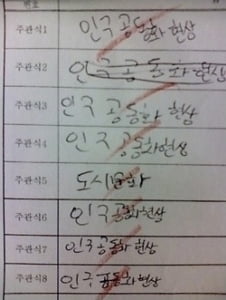 번호
주관식1 인구 공동화 현상
주관식2 인구 공동화 현상
주관식3 인구 공동화 현상
주관식4 인구 공동화현상
주관식5 도시문화
주관식6 인구 공동화현상
주관식7 인구 공동화 현상
주관식8 인구 공동화현상